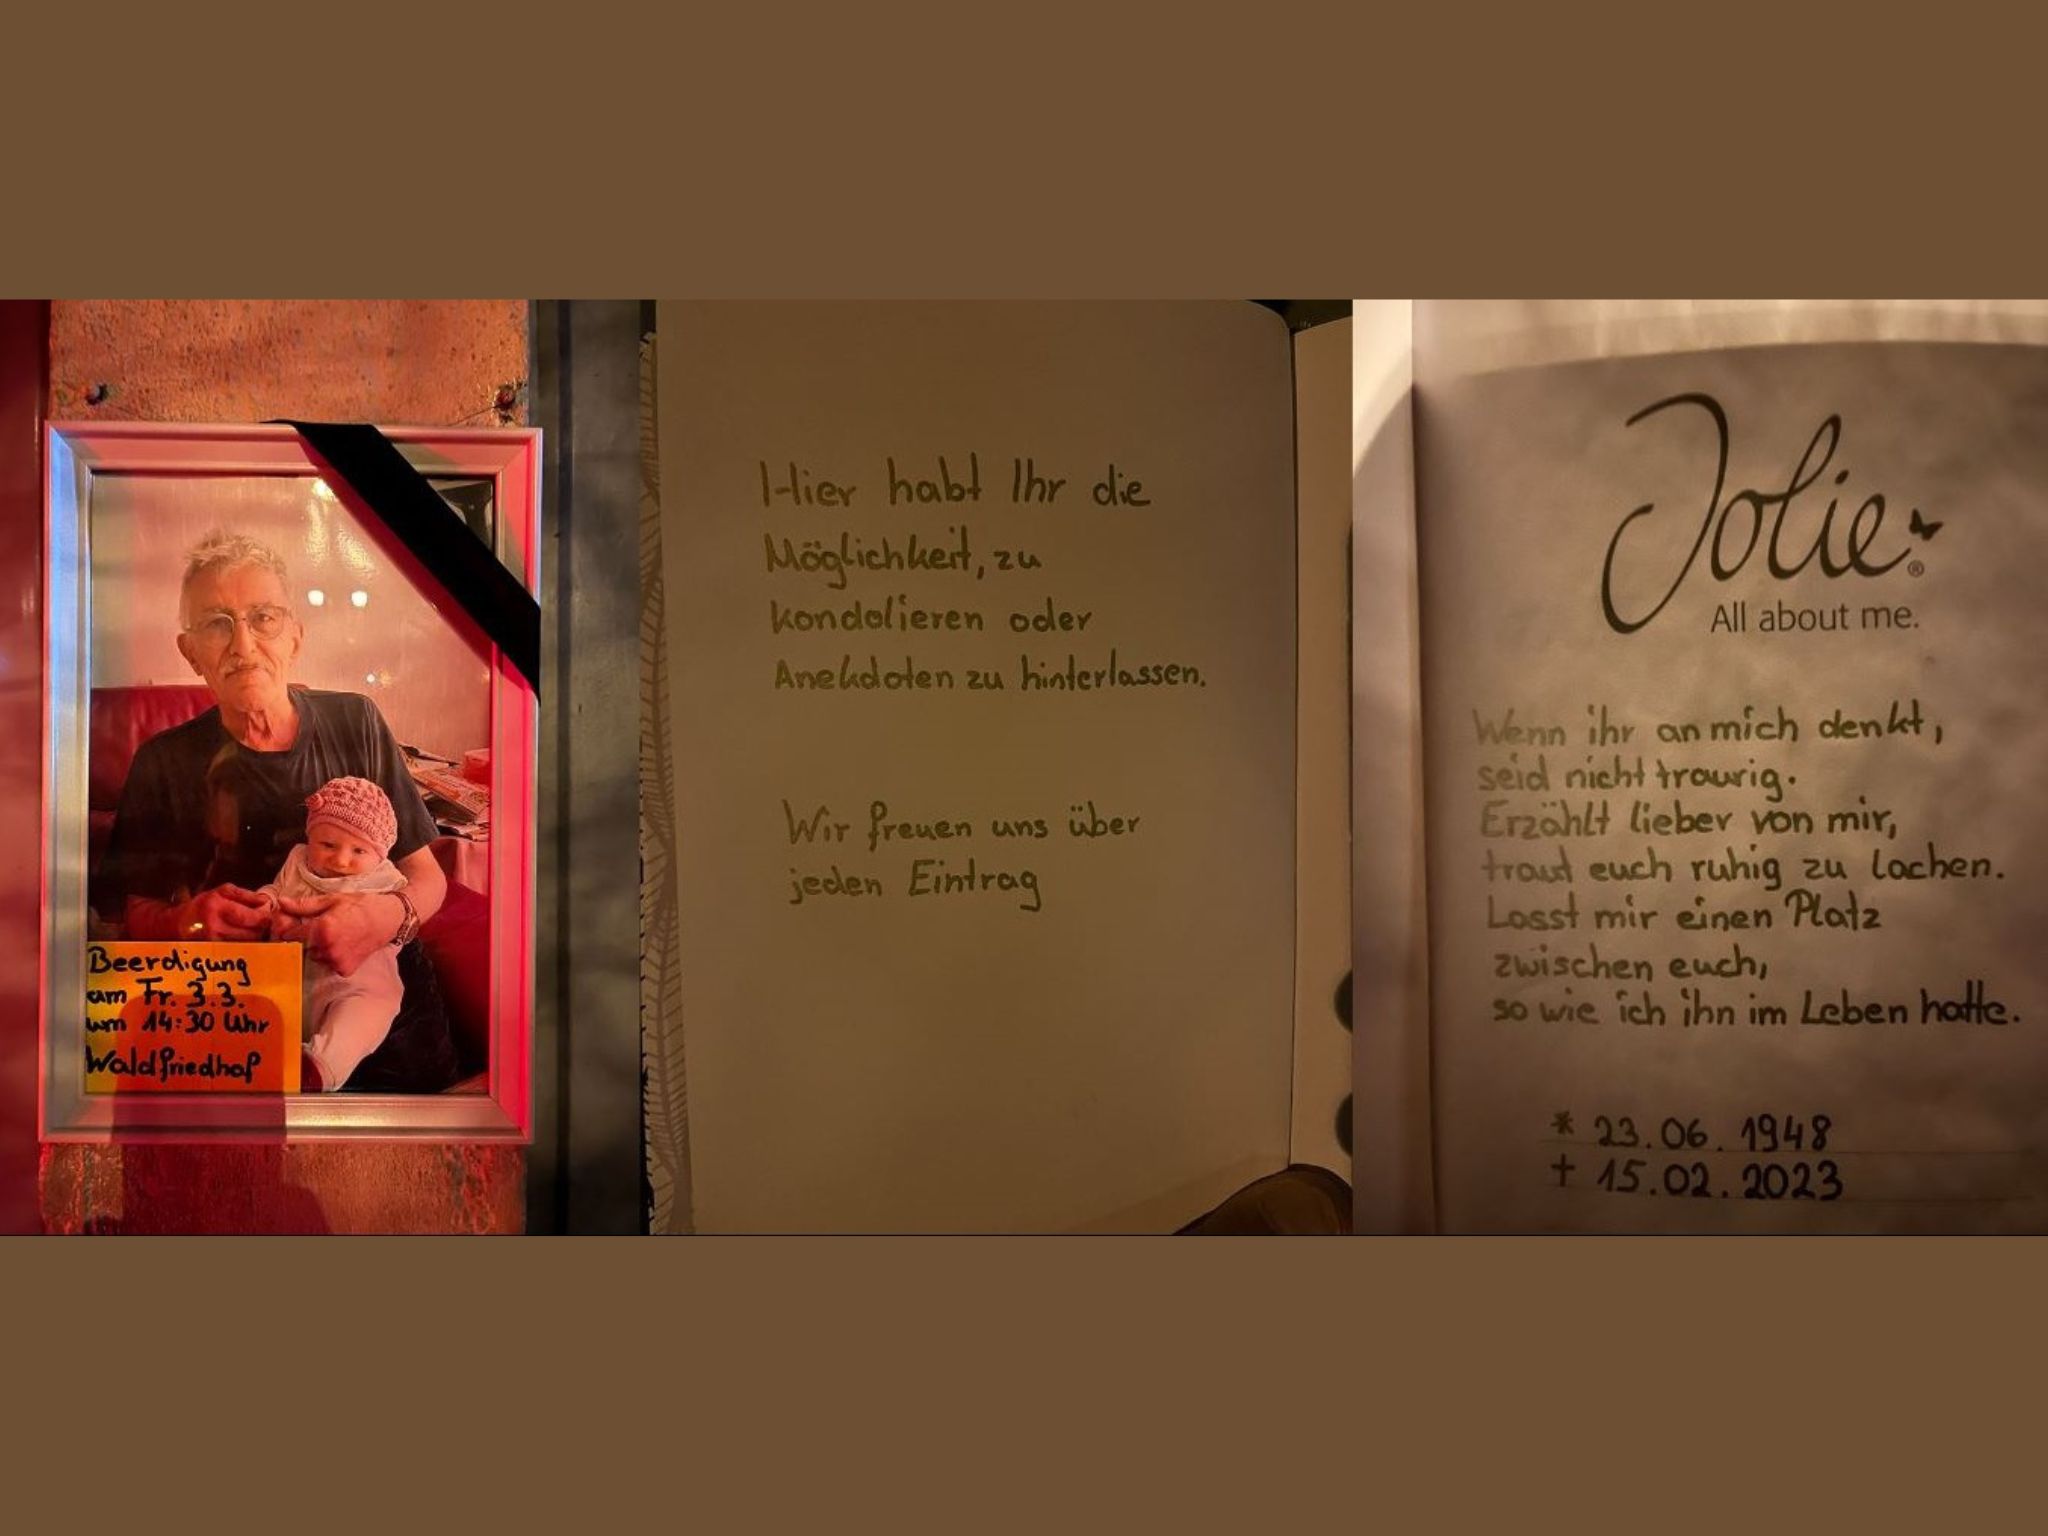 Beerdigung
am Fr. 3.3.
um 14:30 Uhr
Waldfriedhof
Hier habt Ihr die
Möglichkeit, zu
kondolieren oder
Anekdoten zu hinterlassen.
Wir freuen uns über
jeden Eintrag
Jolie®
All about me.
Wenn ihr an mich denkt,
seid nicht traurig.
Erzählt lieber von mir,
traut euch ruhig zu lachen.
Lasst mir einen Platz
zwischen euch,
so wie ich ihn im Leben hatte.
* 23.06.1948
† 15.02.2023